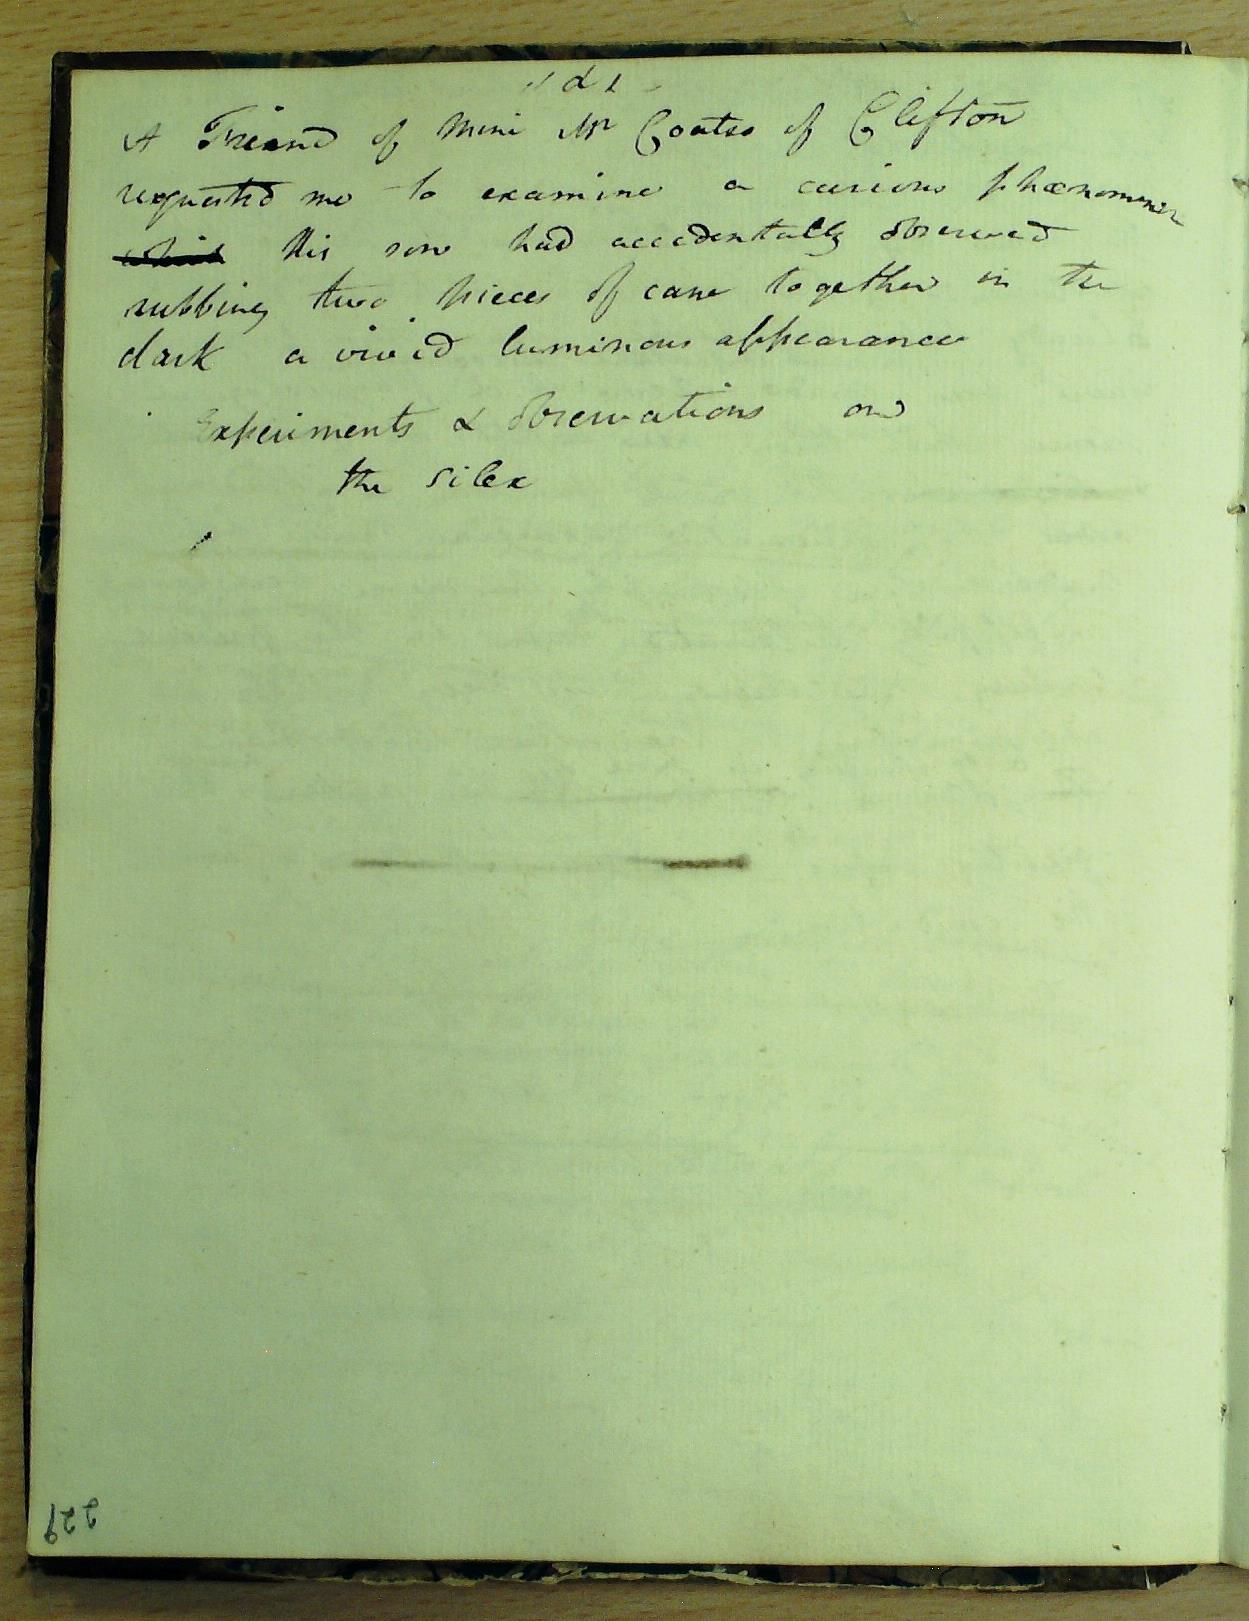 A Friend of mine Mr Coates of Clifton
requested me to examine a curious phænomenon
which his son had accidentally observed
rubbing two pieces of cane together in the
dark a vivid luminous appearance
Experiments & observations on
the silex
229